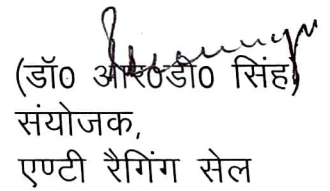 (डॉ0 आर0डी0 सिंह)
संयोजक,
एण्टी रैगिंग सेल